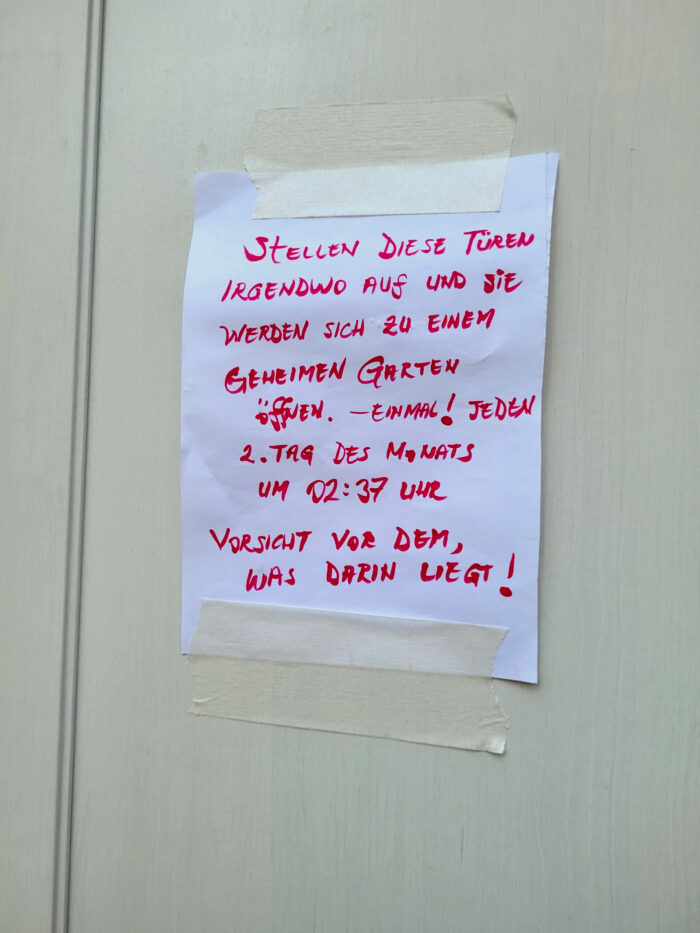 STELLEN DIESE TÜREN
IRGENDWO AUF UND SIE
WERDEN SICH ZU EINEM
GEHEIMEN GARTEN
ÖFFNEN. – EINMAL! JEDEN
2. TAG DES MONATS
UM 02:37 UHR
VORSICHT VOR DEM,
WAS DARIN LIEGT!